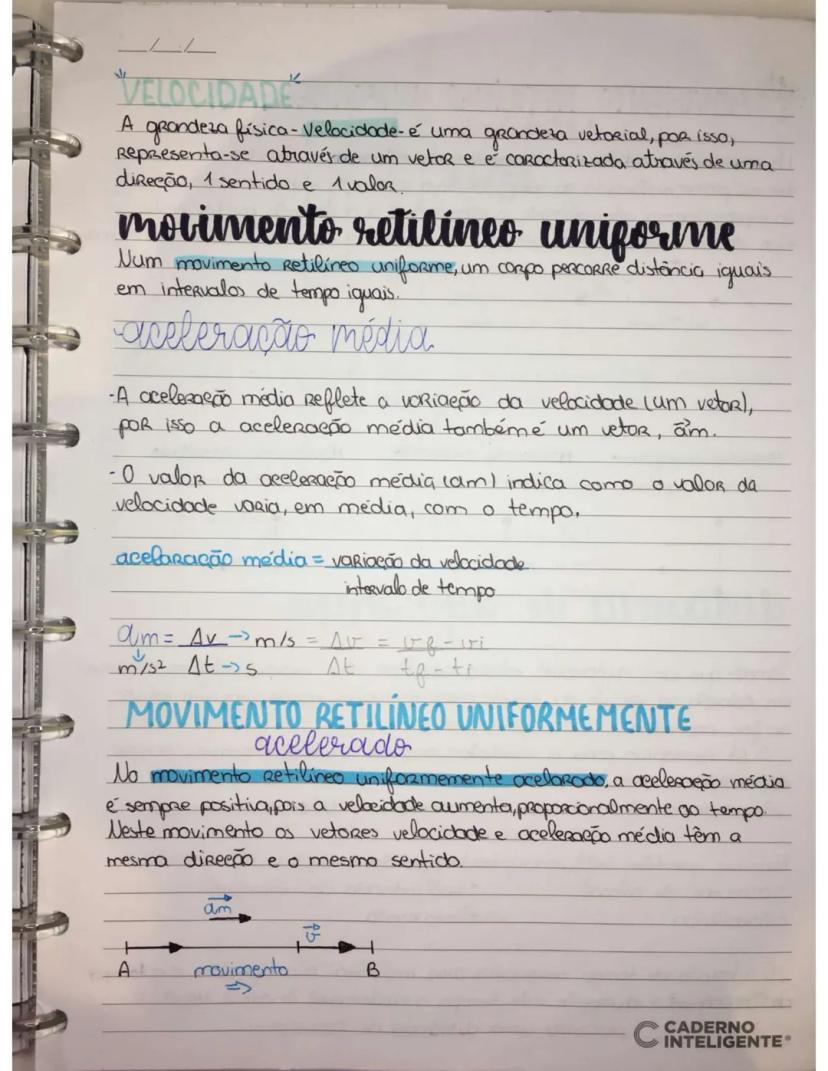 __/__/__
VELOCIDADE
A grandeza física - velocidade - é uma grandeza vetorial, por isso,
representa-se através de um vetor e é caracterizada através de uma
direção, 1 sentido e 1 valor.
movimento retilíneo uniforme
Num movimento retilíneo uniforme, um corpo percorre distância iguais
em intervalos de tempo iguais.
aceleração média
-A aceleração média reflete a variação da velocidade (um vetor),
por isso a aceleração média também é um vetor, a⃗m.
-O valor da aceleração média (am) indica como o valor da
velocidade varia, em média, com o tempo.
acelaração média = variação da velocidade
intervalo de tempo
am = Δv → m/s = Δv = vf - vi
m/s² Δt → s Δt tf - ti
MOVIMENTO RETILÍNEO UNIFORMEMENTE
acelerado
No movimento retilíneo uniformemente acelarado, a aceleração média
é sempre positiva, pois a velocidade aumenta, proporcionalmente ao tempo.
Neste movimento os vetores velocidade e aceleração média têm a
mesma direção e o mesmo sentido.
a⃗m
v⃗
A movimento B
⇒
CADERNO
INTELIGENTE®